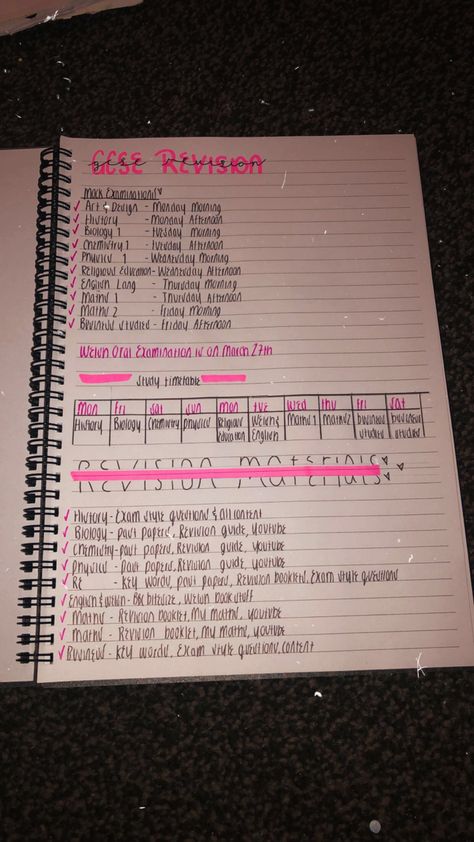 GCSE REVISION
gcse revision
Mock Examinations
Art & Design - Monday Morning
History - Monday Afternoon
Biology 1 - Tuesday Morning
Chemistry 1 - Tuesday Afternoon
Physics 1 - Wednesday Morning
Religious Education - Wednesday Afternoon
English Lang - Thursday Morning
Maths 1 - Thursday Afternoon
Maths 2 - Friday Morning
Business Studies - Friday Afternoon
Welsh Oral Examination is on March 27th
Study timetable
Mon Fri Sat Sun Mon Tue Wed Thu Fri Sat
History Biology Chemistry Physics Religious Education Welsh & English Maths 1 Maths 2 Business Studies Business Studies
REVISION MATERIALS
History - Exam style questions & all content
Biology - past papers, Revision guide, youtube
Chemistry - past papers, Revision guide, youtube
Physics - past papers, Revision guide, youtube
RE - key words, past papers, Revision booklets, Exam style questions
English & Welsh - BBC bitesize, Welsh book stuff
Maths - Revision booklet, My maths, youtube
Maths - Revision booklet, My maths, youtube
Business - key words, Exam style questions, content